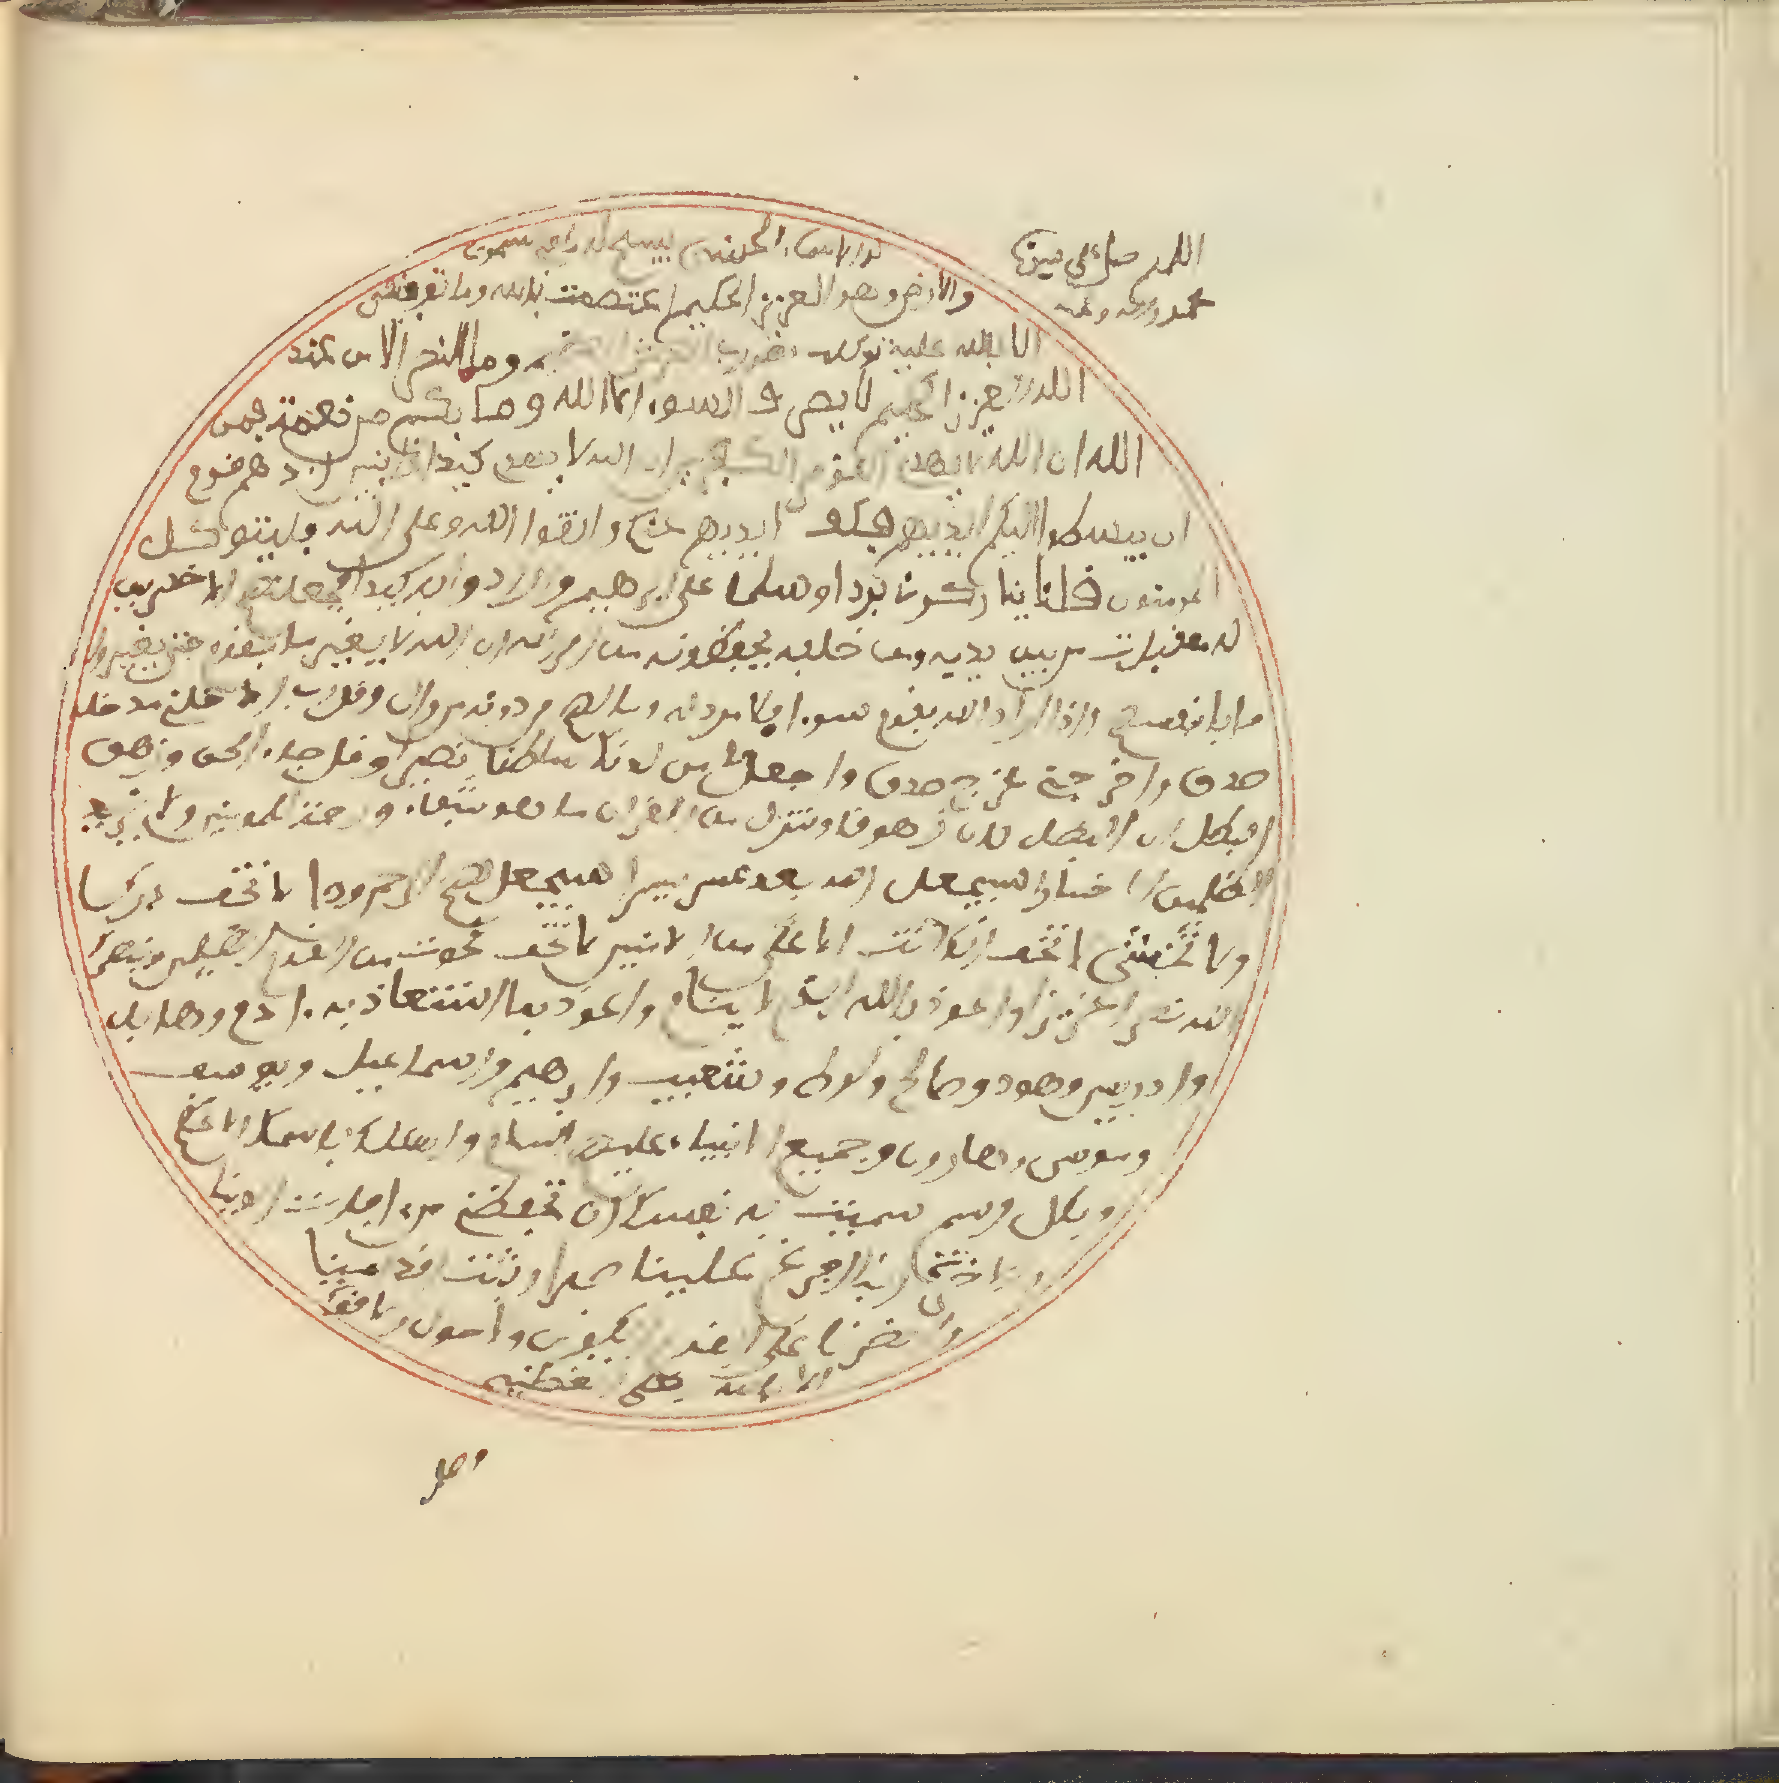 اللهم صل على سيدنا
محمد وءاله وصحبه
له الاسماء الحسنى يسبح له ما في السموت
والارض وهو العزيز الحكيم اعتصمت بالله وما توفيقي
الا بالله عليه توكلت وما النصر الا من عند
الله العزيز الحكيم لا يصرف السوء الا الله وما بكم من نعمة فمن
الله ان الله لا يهدي القوم الكفرين ان الله لا يهدي كيد الخاينين اذ هم قوم
ان يبسطوا اليكم ايديهم فكف ايديهم عنكم واتقوا الله وعلى الله فليتوكل
المومنون قلنا ينار كوني بردا وسلما على ابرهيم وارادوا به كيدا فجعلنهم الاخسرين
له معقبت من بين يديه ومن خلفه يحفظونه من امر الله ان الله لا يغير ما بقوم حتى يغيروا
ما بانفسهم واذا اراد الله بقوم سوءا فلا مرد له وما لهم من دونه من وال وقل رب ادخلني مدخل
صدق واخرجني مخرج صدق واجعل لي من لدنك سلطنا نصيرا وقل جاء الحق وزهق
البطل ان البطل كان زهوقا وننزل من القران ما هو شفاء ورحمة للمومنين ولا يزيد
الظلمين الا خسارا سيجعل الله بعد عسر يسرا سيجعل لهم الرحمن ودا لا تخف دركا
ولا تخشى لا تخف انك انت الاعلى من الامنين لا تخف نجوت من القوم الظلمين وينصرك
الله نصرا عزيزا واعوذ بالله واعوذ بما استعاذ به ادم وهابيل
وادريس وهود وصالح ولوط وشعيب وابرهيم واسماعيل ويوسف
وموسى وهارون وجميع الانبياء عليهم السلام واسئلك باسمك الاعظم
وبكل اسم سميت به نفسك ان تحفظني من افات الدنيا
والاخرة ربنا افرغ علينا صبرا وثبت اقدامنا
وانصرنا على القوم الكفرين ولا حول ولا قوة
الا بالله العلي العظيم